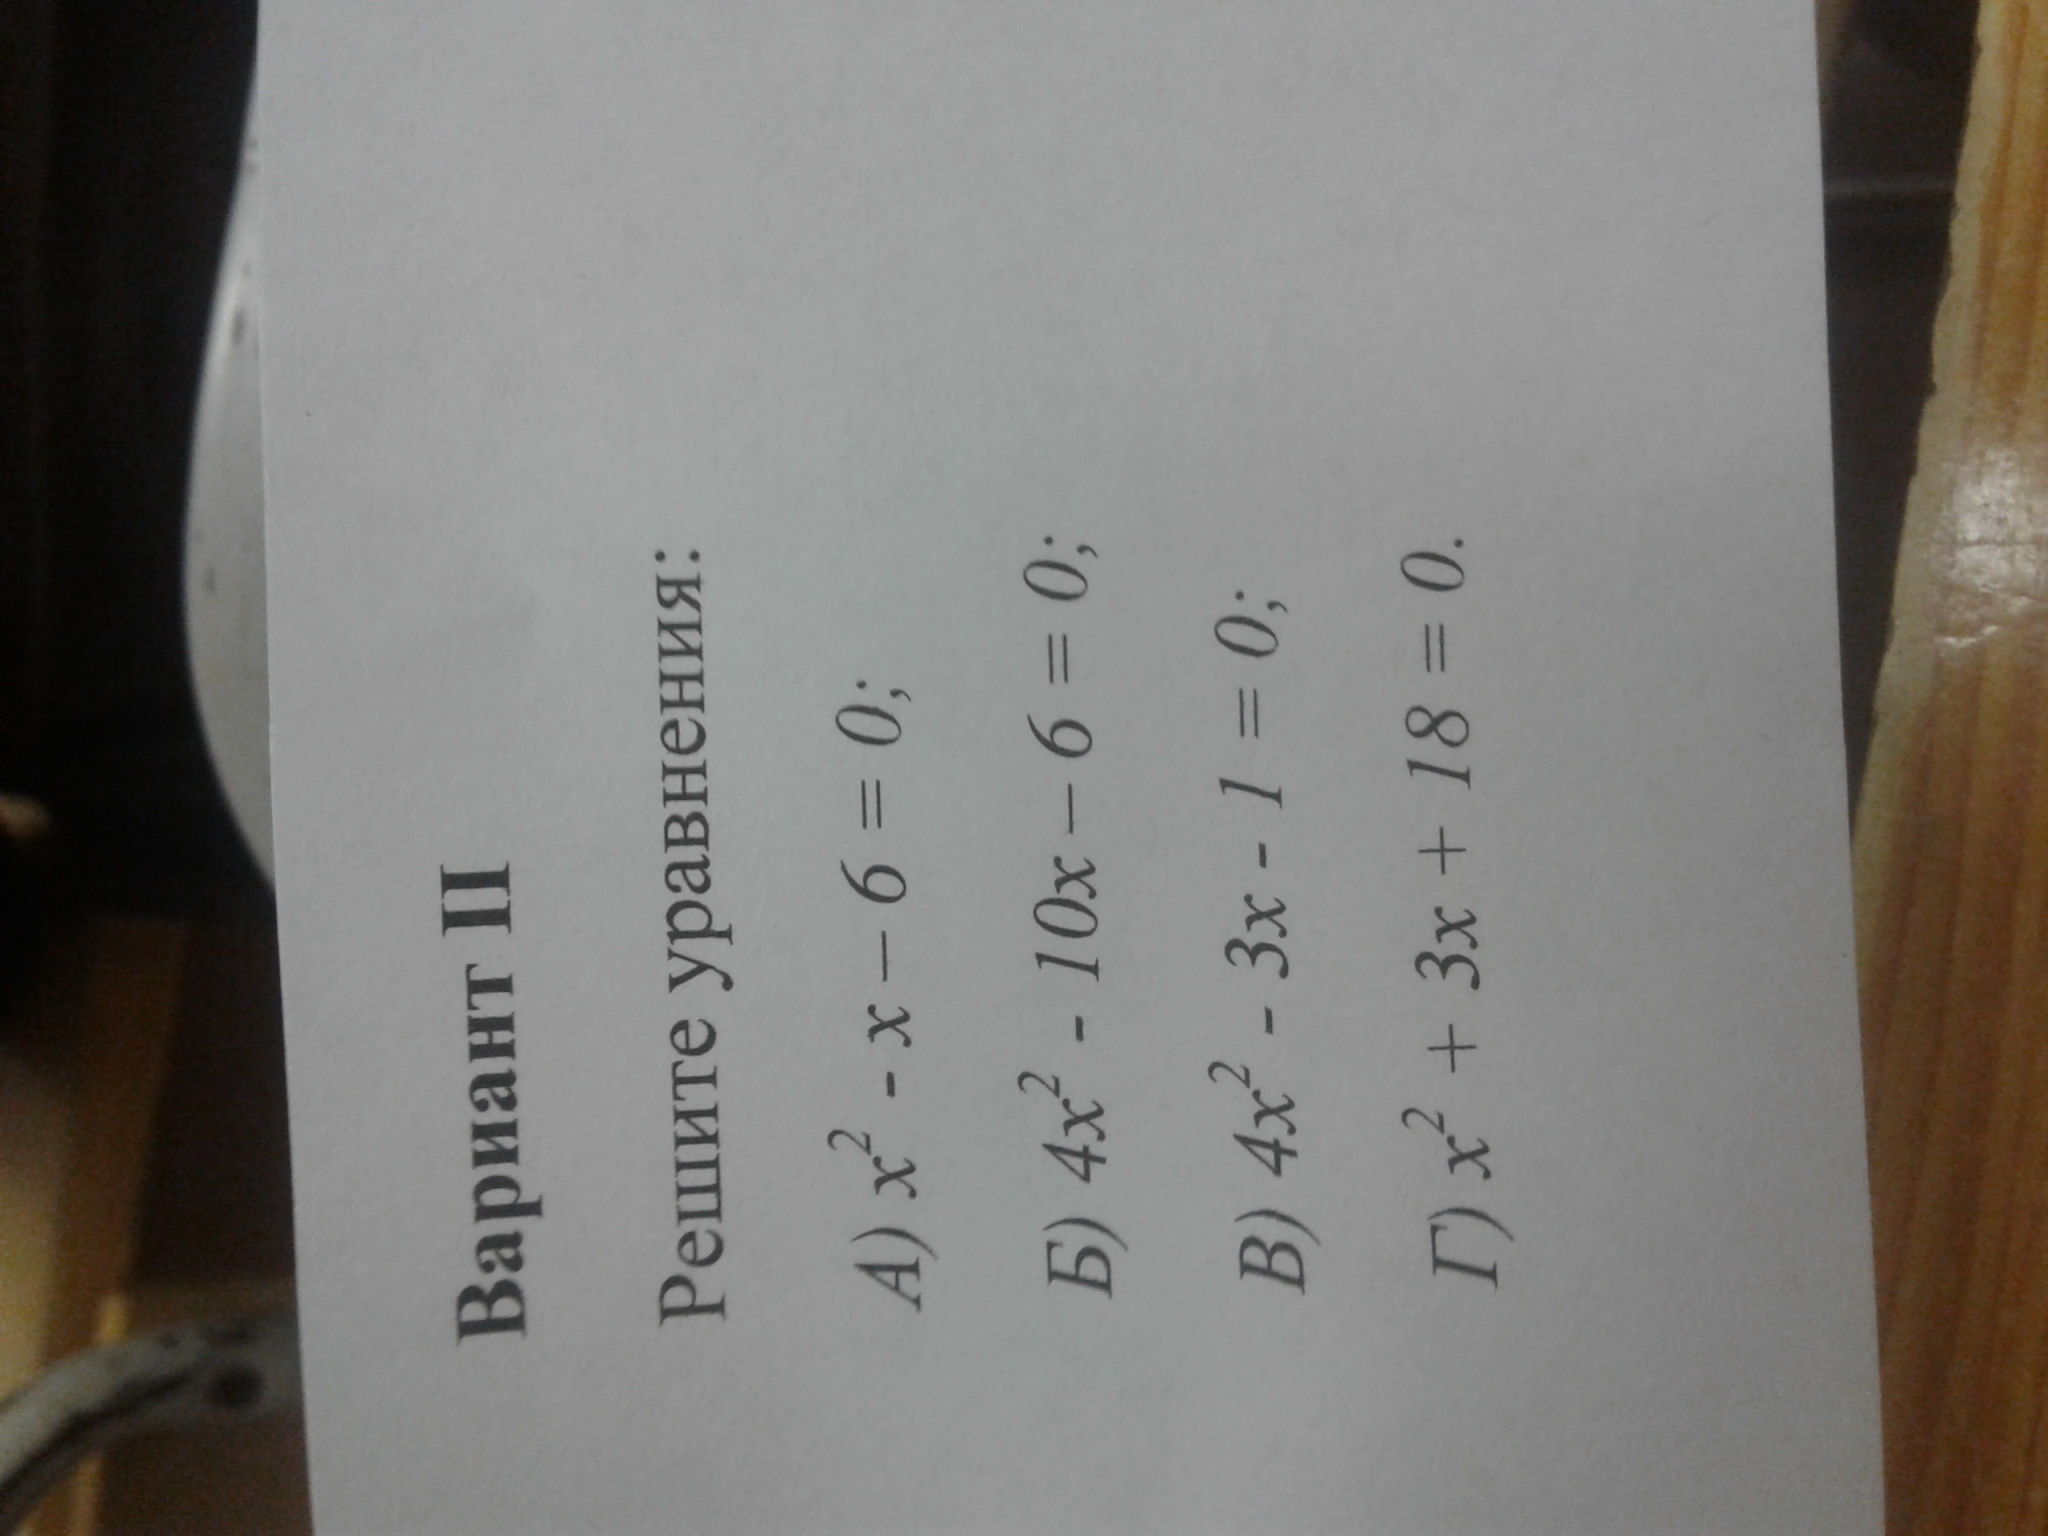 Вариант II
Решите уравнения:
А) x² - x – 6 = 0;
Б) 4x² - 10x – 6 = 0;
В) 4x² - 3x - 1 = 0;
Г) x² + 3x + 18 = 0.